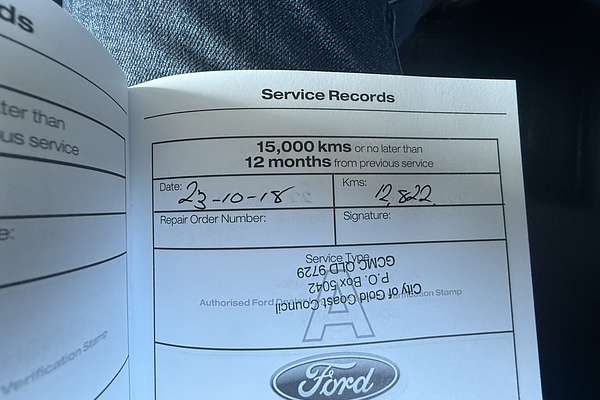 ds
ter than
us service
e:
Verification Stamp
Service Records
15,000 kms or no later than
12 months from previous service
Date: 23-10-18
Kms: 12,822
Repair Order Number:
Signature:
Service Type
A
Authorised Ford Verification Stamp
City of Gold Coast Council
P.O. Box 5042
GCMC QLD 9729
Ford